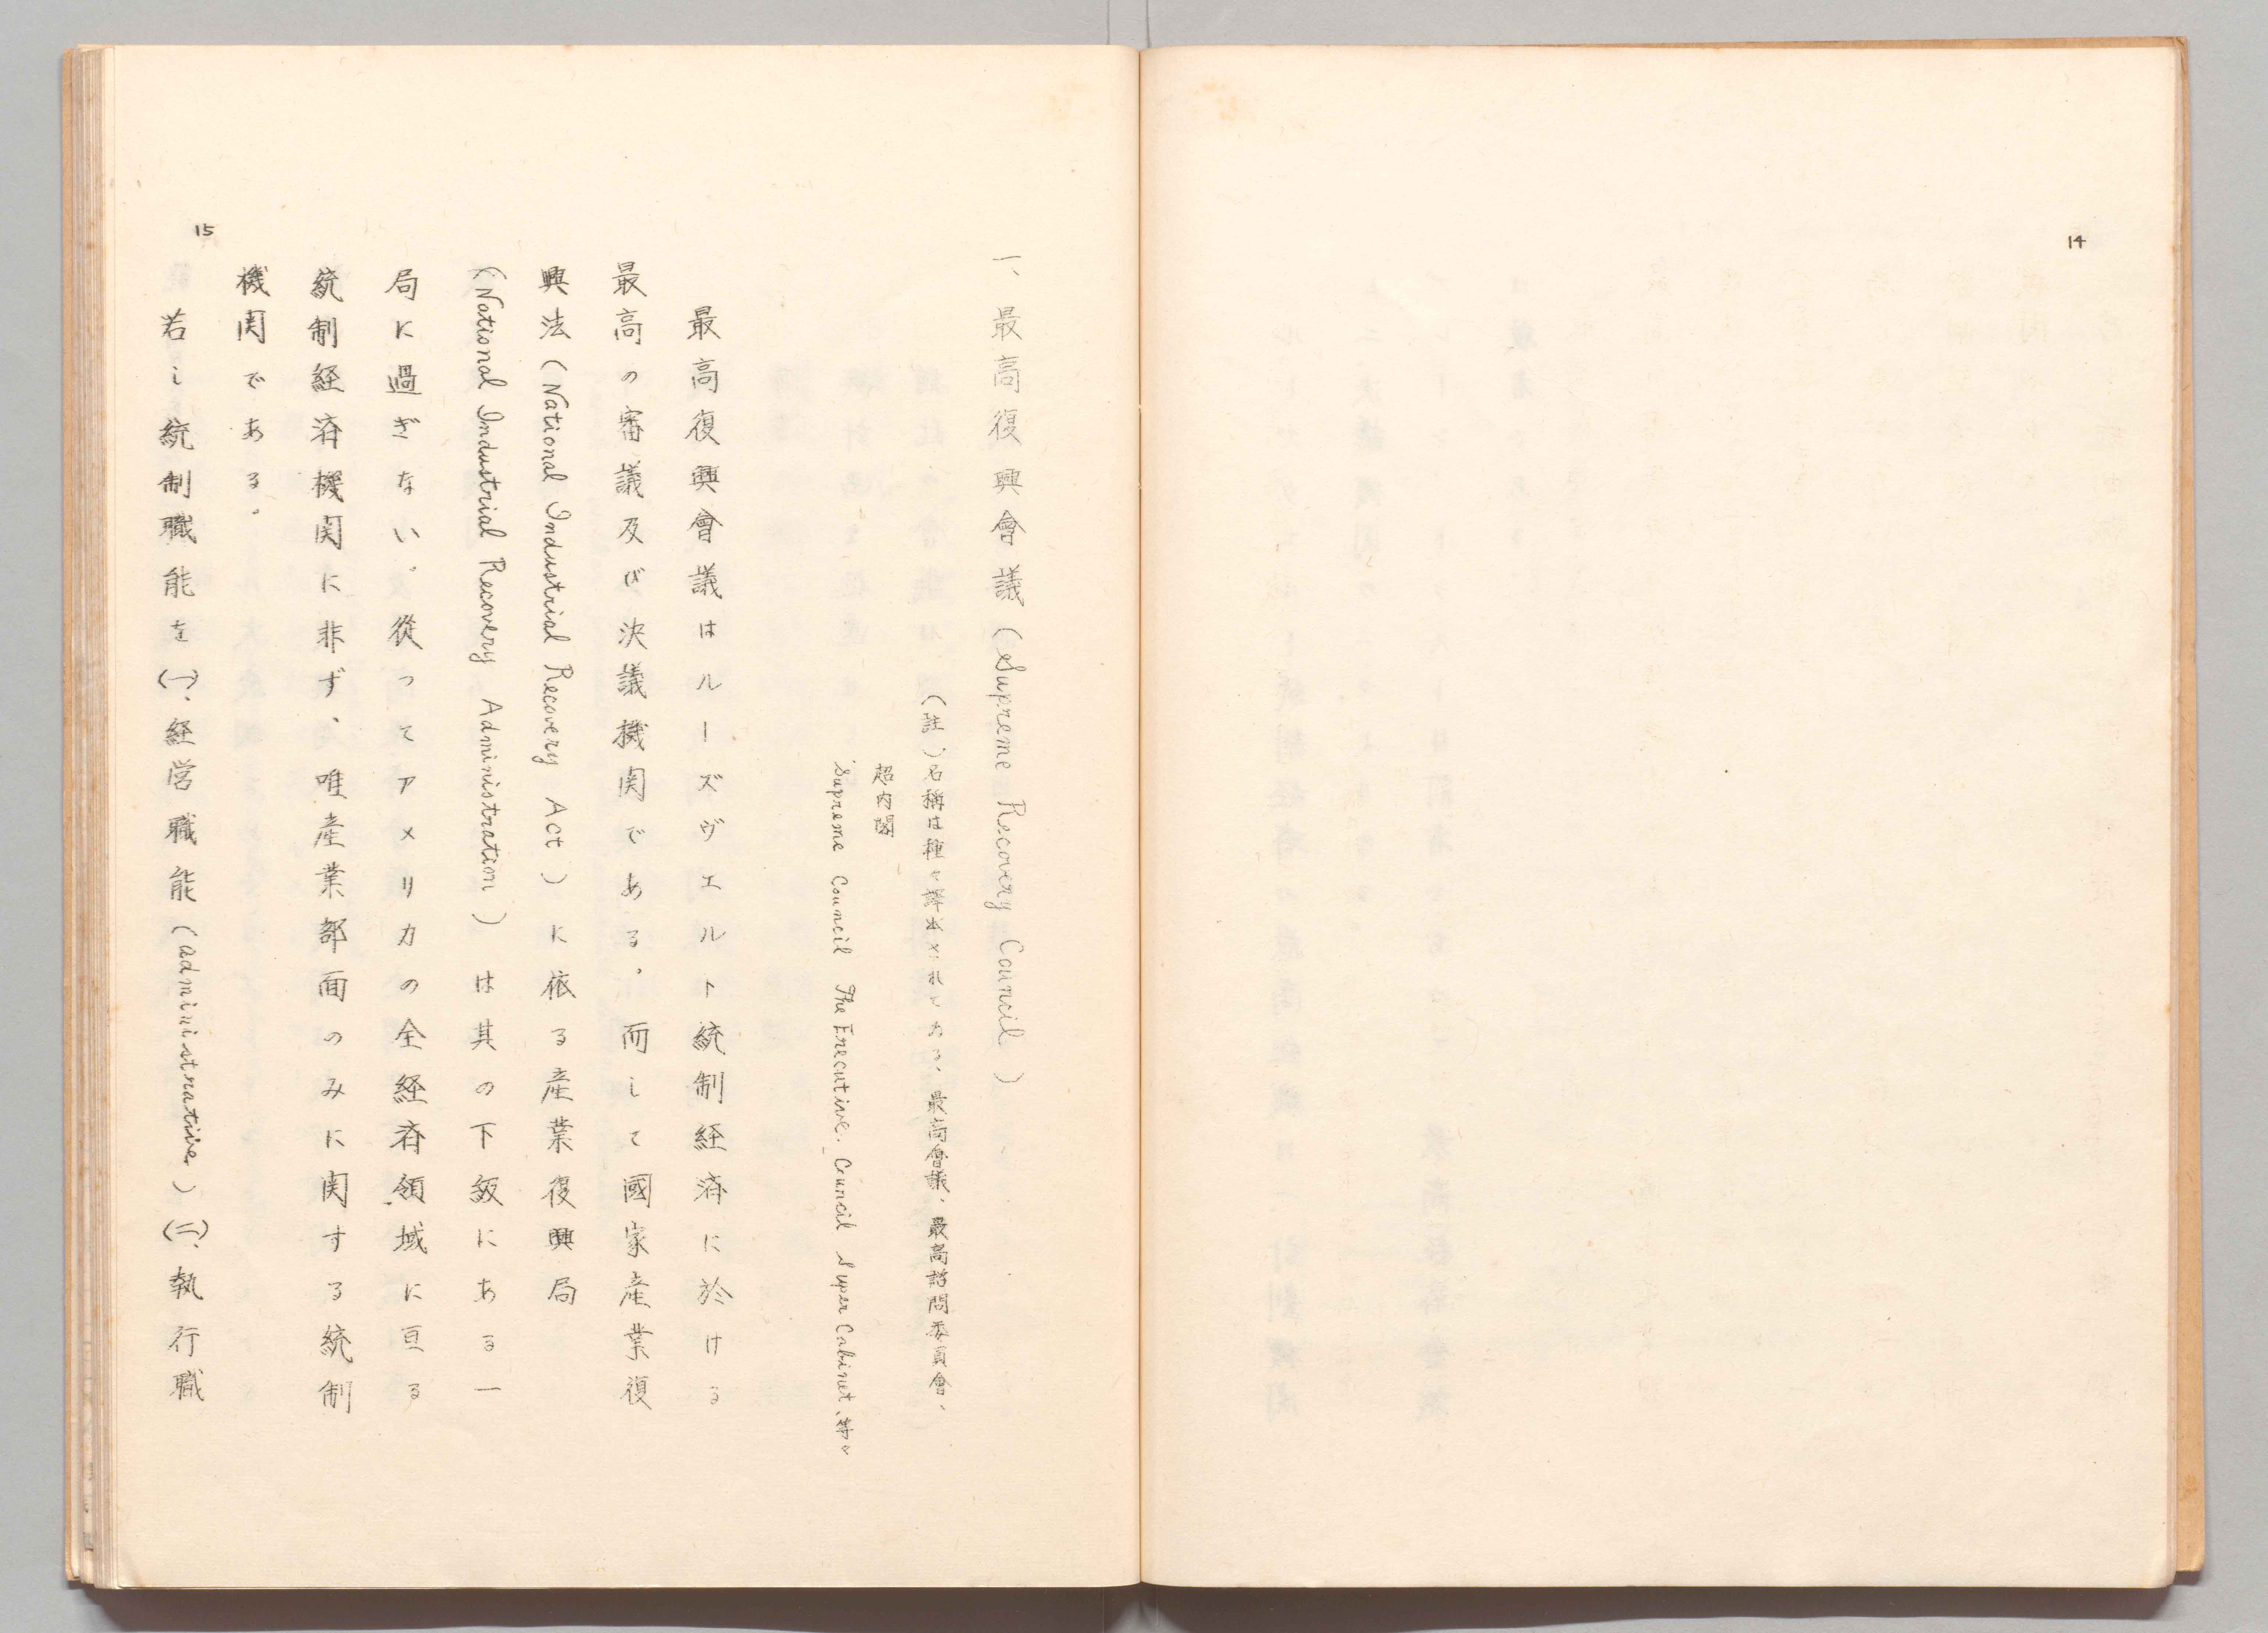 14
一、最高復興會議（Supreme Recovery Council）
（註）名稱は種々譯出されてある、最高會議、最高諮問委員會、
超内閣
Supreme Council The Executive. Council Super Cabinet、等々
最高復興會議はルーズヴエルト統制経済に於ける
最高の審議及び決議機関である。而して國家産業復
興法（National Industrial Recovery Act）に依る産業復興局
（National Industrial Recovery Administration）は其の下級にある一
局に過ぎない。從つてアメリカの全経済領域に亘る
統制経済機関に非ず、唯産業部面のみに関する統制
機関である。
若し統制職能を(一)、経営職能（administrative）(二)、執行職
15